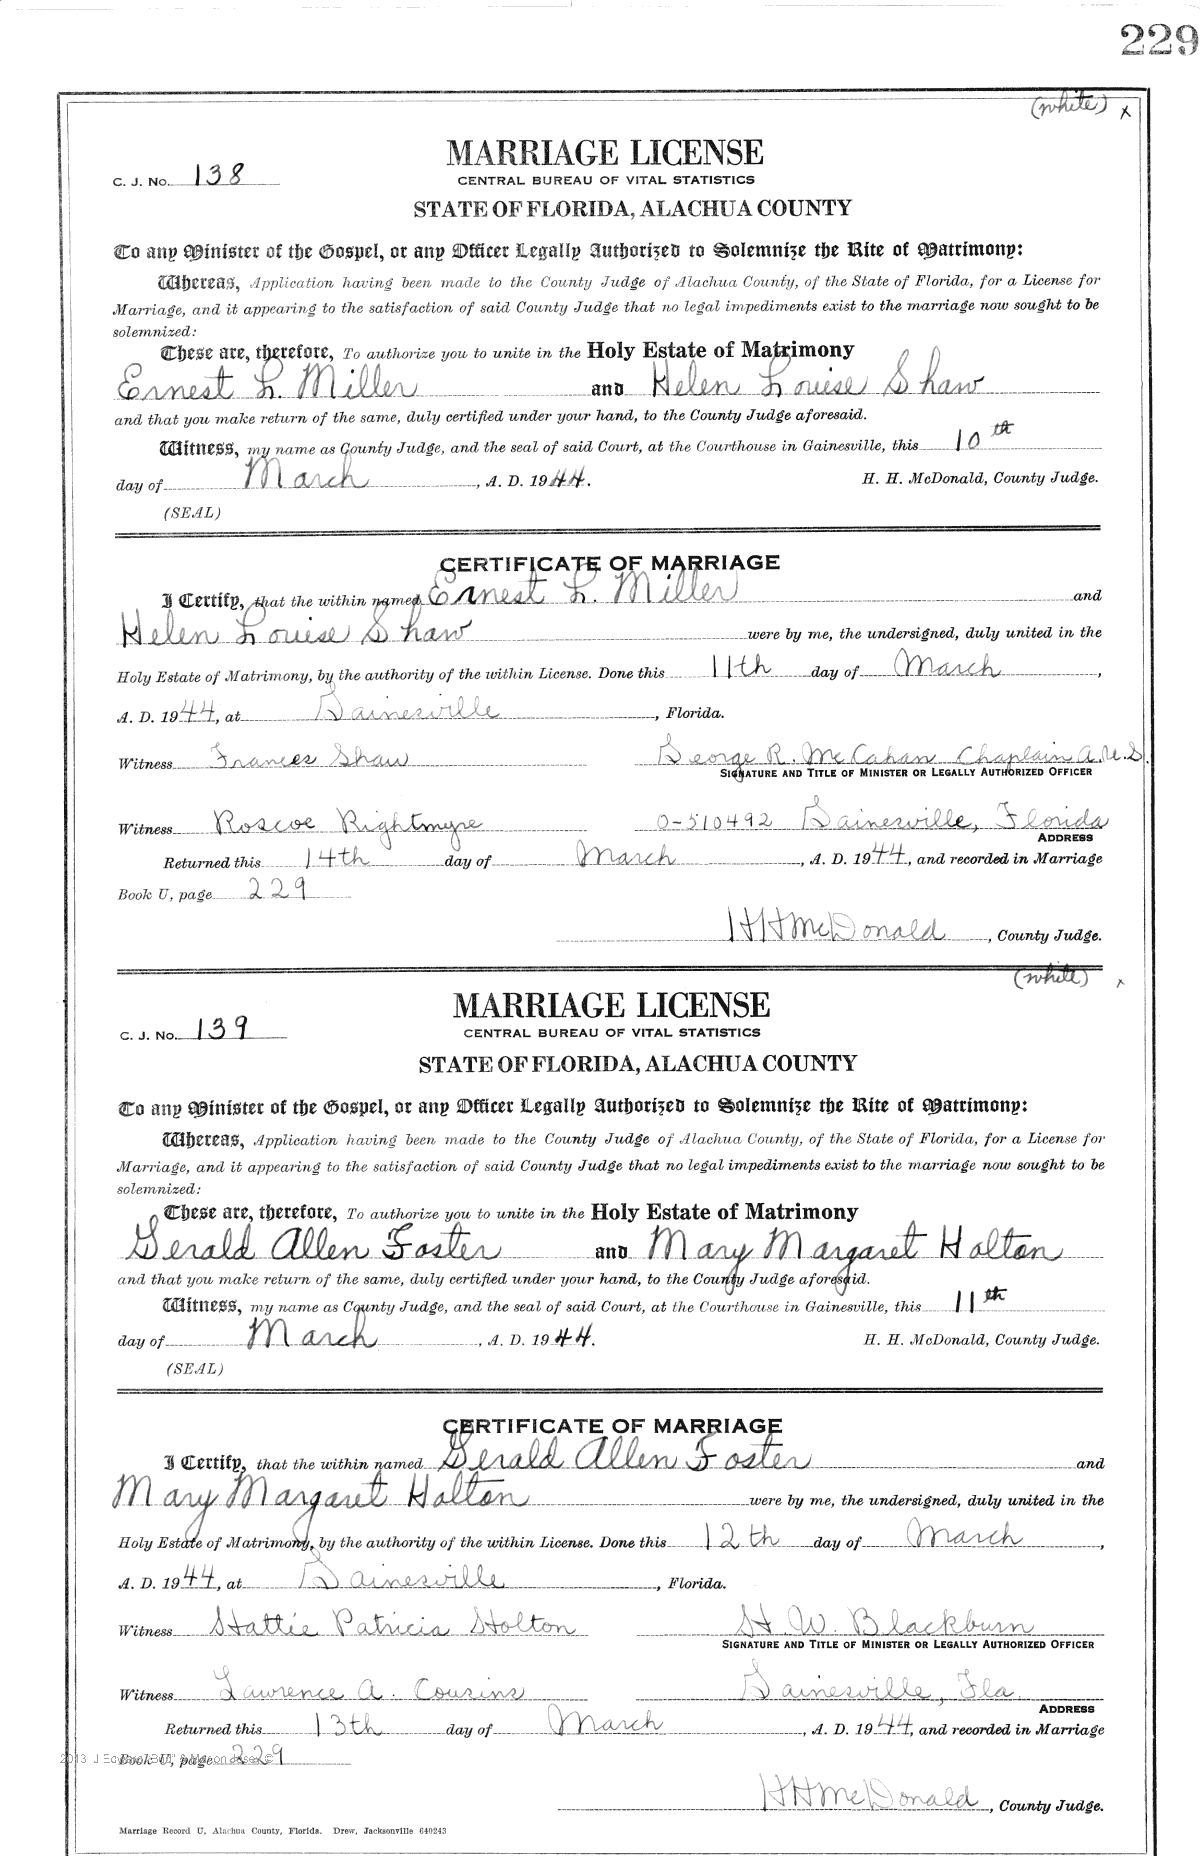 229
(white) x
MARRIAGE LICENSE
C. J. No. 138
CENTRAL BUREAU OF VITAL STATISTICS
STATE OF FLORIDA, ALACHUA COUNTY
To any Minister of the Gospel, or any Officer Legally Authorized to Solemnize the Rite of Matrimony:
Whereas, Application having been made to the County Judge of Alachua County, of the State of Florida, for a License for
Marriage, and it appearing to the satisfaction of said County Judge that no legal impediments exist to the marriage now sought to be
solemnized:
These are, therefore, To authorize you to unite in the Holy Estate of Matrimony
Ernest L. Miller and Helen Louise Shaw
and that you make return of the same, duly certified under your hand, to the County Judge aforesaid.
Witness, my name as County Judge, and the seal of said Court, at the Courthouse in Gainesville, this 10th
day of March, A. D. 1944. H. H. McDonald, County Judge.
(SEAL)
CERTIFICATE OF MARRIAGE
I Certify, that the within named Ernest L. Miller and
Helen Louise Shaw were by me, the undersigned, duly united in the
Holy Estate of Matrimony, by the authority of the within License. Done this 11th day of March,
A. D. 1944, at Gainesville, Florida.
Witness Frances Shaw George R. McCahan Chaplain A.U.S.
SIGNATURE AND TITLE OF MINISTER OR LEGALLY AUTHORIZED OFFICER
Witness Roscoe Rightmyre 0-510492 Gainesville, Florida
ADDRESS
Returned this 14th day of March, A. D. 1944, and recorded in Marriage
Book U, page 229
HHMcDonald, County Judge.
(white) x
MARRIAGE LICENSE
C. J. No. 139
CENTRAL BUREAU OF VITAL STATISTICS
STATE OF FLORIDA, ALACHUA COUNTY
To any Minister of the Gospel, or any Officer Legally Authorized to Solemnize the Rite of Matrimony:
Whereas, Application having been made to the County Judge of Alachua County, of the State of Florida, for a License for
Marriage, and it appearing to the satisfaction of said County Judge that no legal impediments exist to the marriage now sought to be
solemnized:
These are, therefore, To authorize you to unite in the Holy Estate of Matrimony
Gerald Allen Foster and Mary Margaret Holton
and that you make return of the same, duly certified under your hand, to the County Judge aforesaid.
Witness, my name as County Judge, and the seal of said Court, at the Courthouse in Gainesville, this 11th
day of March, A. D. 1944. H. H. McDonald, County Judge.
(SEAL)
CERTIFICATE OF MARRIAGE
I Certify, that the within named Gerald Allen Foster and
Mary Margaret Holton were by me, the undersigned, duly united in the
Holy Estate of Matrimony, by the authority of the within License. Done this 12th day of March,
A. D. 1944, at Gainesville, Florida.
Witness Hattie Patricia Holton H. W. Blackburn
SIGNATURE AND TITLE OF MINISTER OR LEGALLY AUTHORIZED OFFICER
Witness Lawrence A. Cousins Gainesville, Fla.
ADDRESS
Returned this 13th day of March, A. D. 1944, and recorded in Marriage
Book U, page 229
HHMcDonald, County Judge.
Marriage Record U, Alachua County, Florida. Drew, Jacksonville 640243